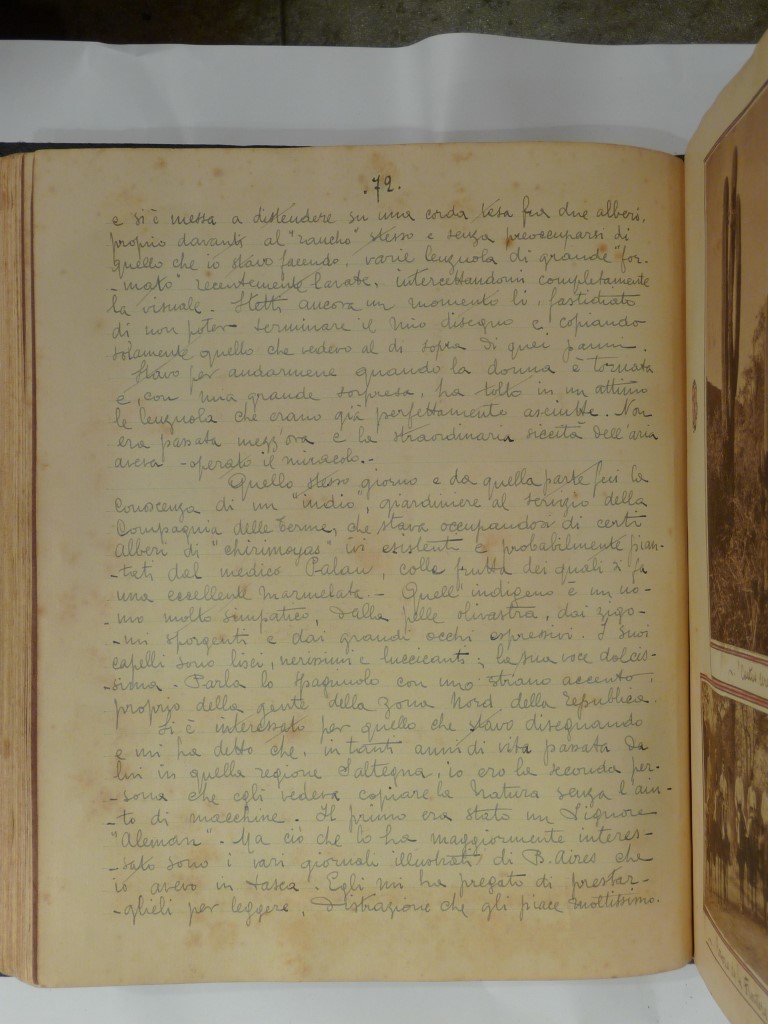 .72.
e si è messa a distendere su una corda tesa fra due alberi,
proprio davanti al "rancho" stesso e senza preoccuparsi di
quello che io stavo facendo, varie lenzuola di grande "for-
-mato" recentemente lavate, intercettandomi completamente
la visuale. Stetti ancora un momento lì, fastidiato
di non poter terminare il mio disegno e copiando
solamente quello che vedevo al di sopra di quei panni.
Stavo per andarmene quando la donna è tornata
e, con una grande sorpresa, ha tolto in un attimo
le lenzuola che erano già perfettamente asciutte. Non
era passata mezz'ora e la straordinaria siccità dell'aria
aveva operato il miracolo.-
Quello stesso giorno e da quella parte feci la
conoscenza di un "indio", giardiniere al servizio della
Compagnia delle Terme, che stava occupandosi di certi
alberi di "chirimoyas" ivi esistenti e probabilmente pian-
-tati dal medico Palau, colle frutta dei quali si fa
una eccellente marmelata.- Quell'indigeno è un uo-
-mo molto simpatico, dalla pelle olivastra, dai zigo-
-mi sporgenti e dai grandi occhi espressivi. I suoi
capelli sono lisci, nerissimi e luccicanti; la sua voce dolcis-
-sima. Parla lo Spagnuolo con uno strano accento,
proprio della gente della zona Nord della repubblica.
Si è interessato per quello che stavo disegnando
e mi ha detto che, in tanti anni di vita passata da
lui in quella regione Saltegna, io ero la seconda per-
-sona che egli vedeva copiare la Natura senza l'aiu-
-to di macchine. Il primo era stato un Signore
"Aleman". Ma ciò che lo ha maggiormente interes-
-sato sono i vari giornali illustrati di B. Aires che
io avevo in tasca. Egli mi ha pregato di prestar-
-glieli per leggere, distrazione che gli piace moltissimo.